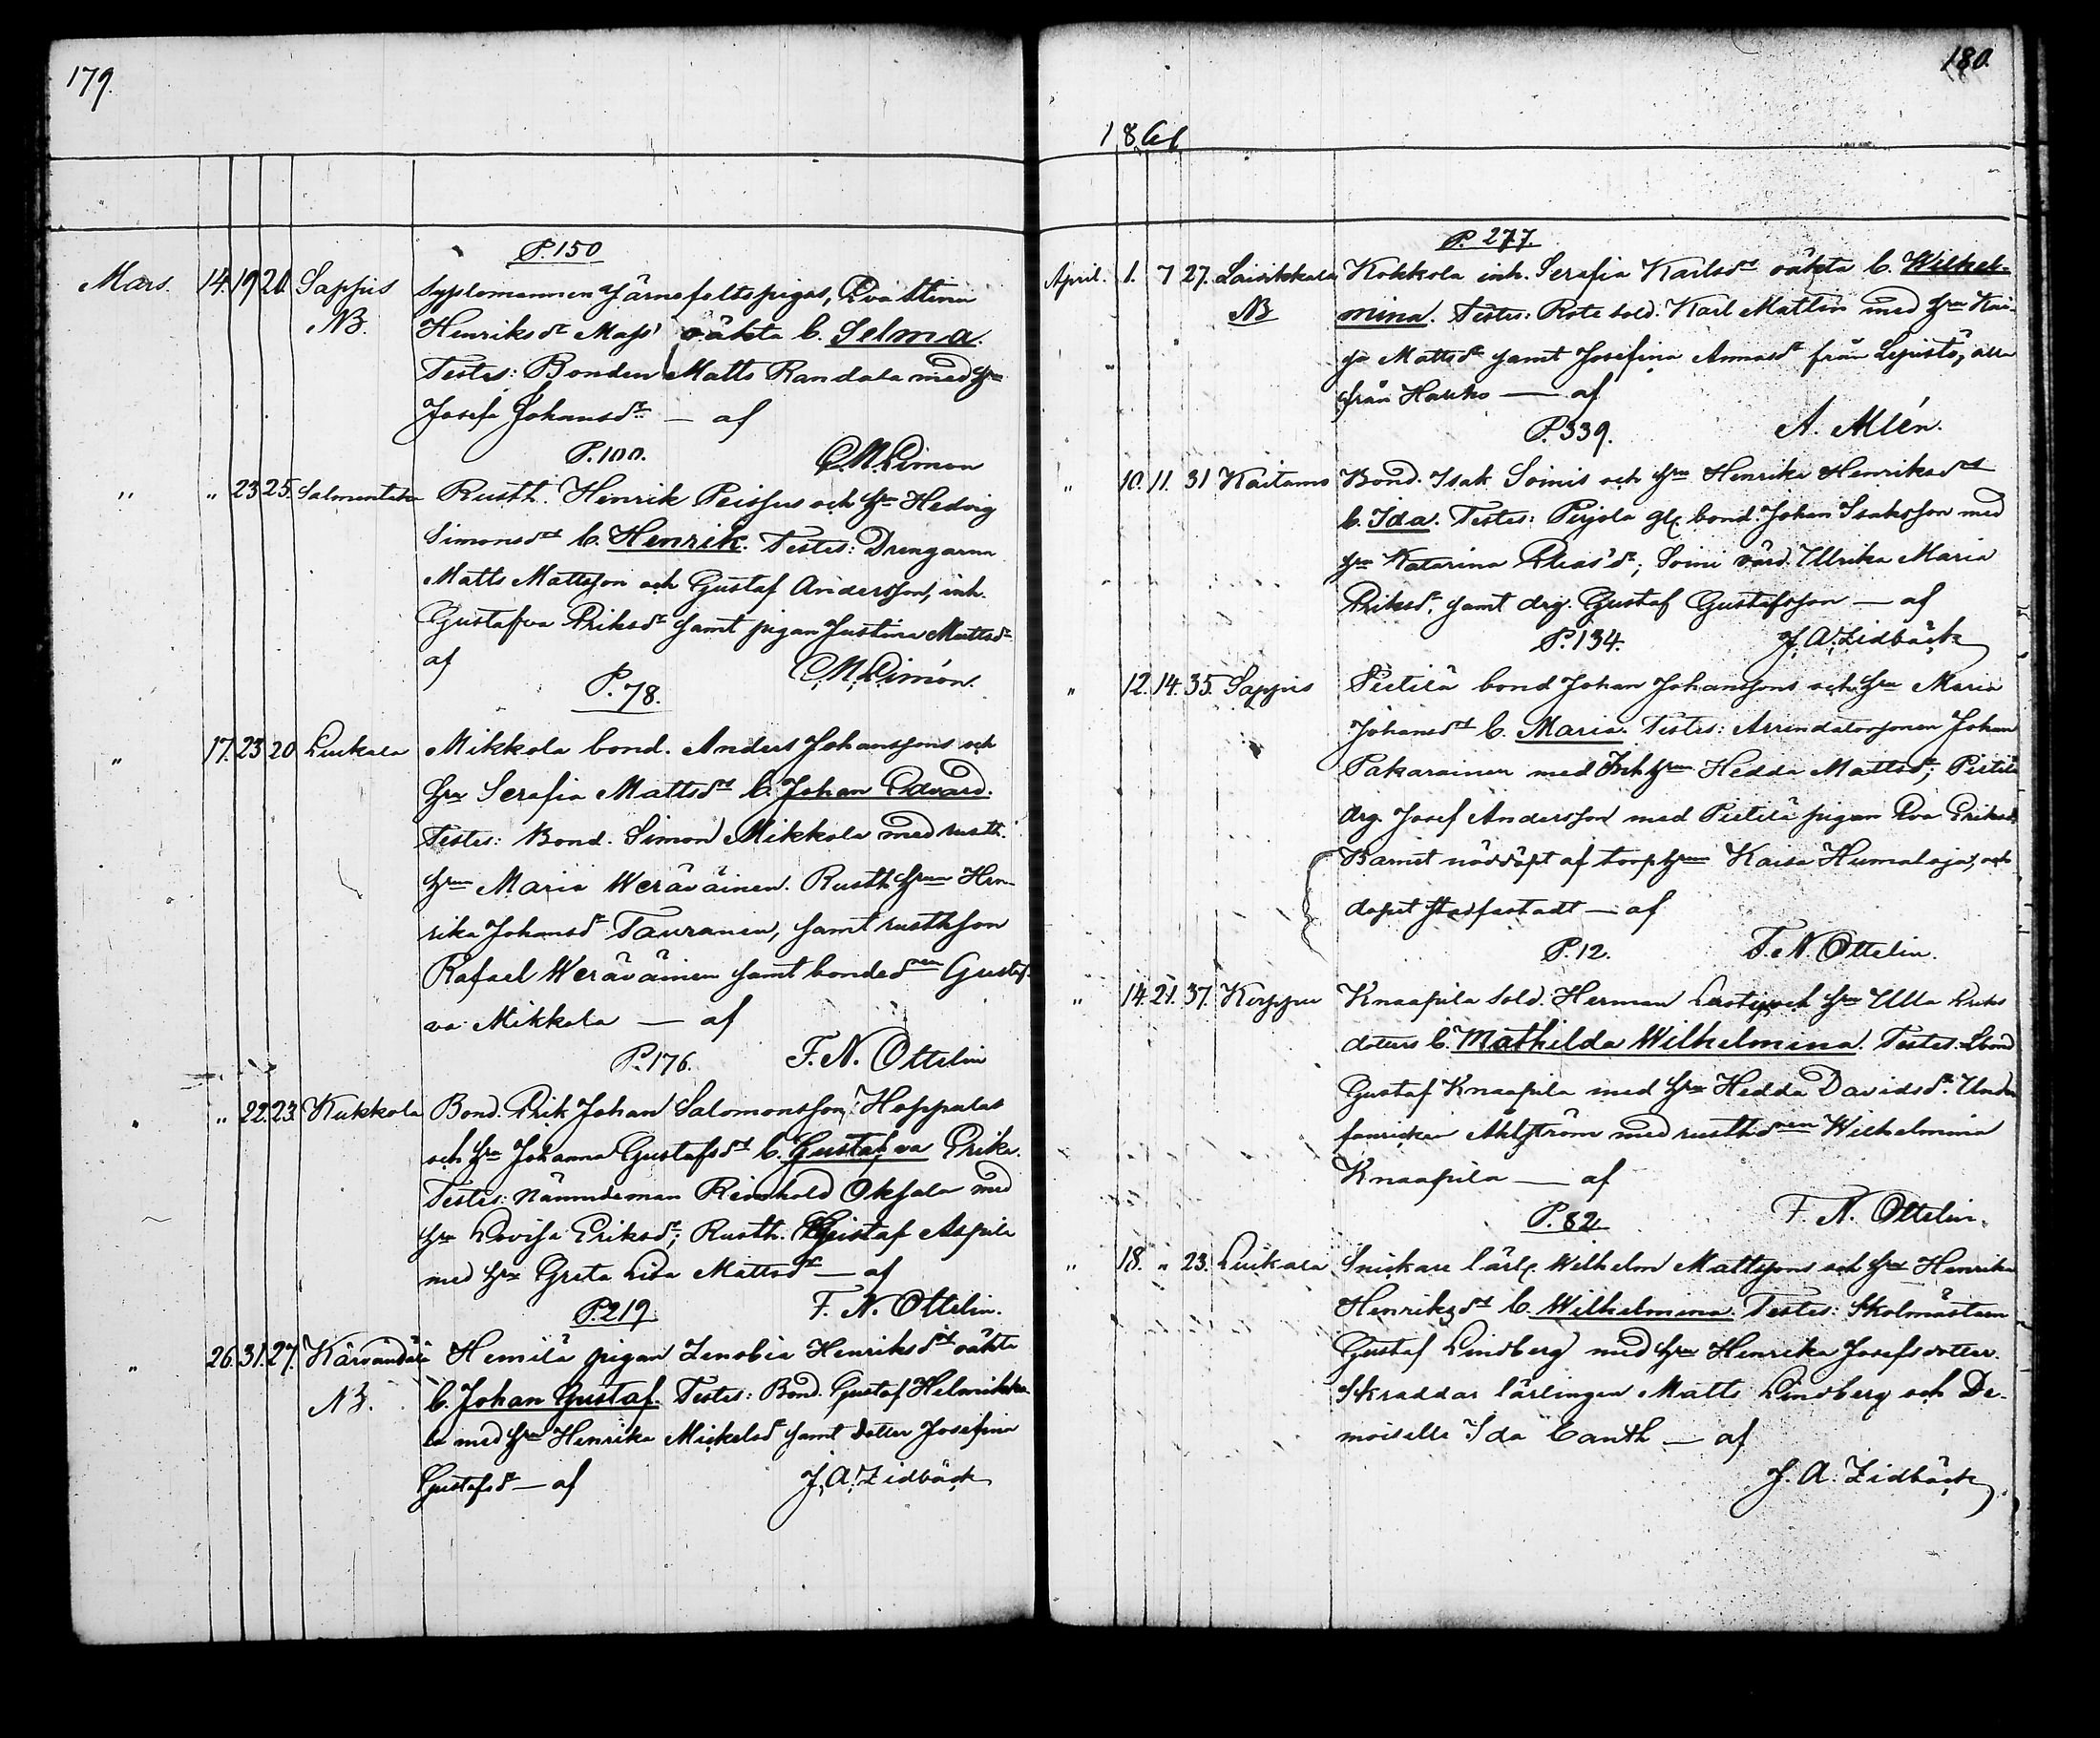 179.
P. 150
Mars. 14. 19 21. Sappis Syslomannen Järnefelts pigas, Eva Stina
NB. Henriksdr Mass' oäkta b. Selma.
Testes: Bonden Matts Randala med hru
Josefa Johansdr — af
P. 100. C.M. Limon
" " 23 25. Salmentaka Rusth. Henrik Peissus och hru Hedvig
Simonsdrs b. Henrik. Testes: Drengarna
Matts Mattsson och Gustaf Andersson, inh.
Gustafva Eriksdr samt pigan Justina Mattsdr
af C.M. Limón.
P. 78.
" 17. 23 20 Liukala Mikkola bond. Anders Johanssons och
hru Serafia Mattsdrs b. Johan Edvard.
Testes: Bond. Simon Mikkola med rusth.
hrun Maria Weräväinen. Rusth hrun Hen-
rika Johansdr Tauranen, samt rusthson
Rafael Weräväinen samt bondedren Gustaf-
va Mikkola — af
P. 176. F. N. Ottelin
" " 22. 23. Kukkola Bond. Erik Johan Salomonsson Hoppulas
och hru Johanna Gustafsdrs b. Gustafva Erika.
Testes: Nämndeman Reinhold Oksala med
hru Lovisa Eriksdr; Rusth. Gustaf Aspila
med hru Greta Lisa Mattsdr — af
P. 219. F. N. Ottelin.
" 26. 31. 27. Hemilä pigan Zenobia Henriksdrs oäkta
NB. b. Johan Gustaf. Testes: Bond. Gustaf Helanikka-
la med hru Henrika Mickelsdr samt dotter Josefina
Gustafsdr — af J. A. Zidbäck
180.
1861
P. 277.
April. 1. 7 27. Laiikkala Kokkola inh. Serafia Karlsdrs oäkta b. Wilhel-
NB mina. Testes: Rote sold. Karl Mattin med hru Kai-
sa Mattsdr samt Josefina Annasdr från Lepistö, alla
från Hauho — af
P. 339. A. Alén.
" 10. 11. 31 Kaitamo Bond. Isak Soinis och hru Henrika Henriksdrs
b. Ida. Testes: Perjola gl. bond. Johan Isaksson med
hru Katarina Elias'dr; Soini värd. Ullrika Maria
Eriksdr, samt drg. Gustaf Gustafsson — af
P. 134. J. A. Zidbäck
" 12. 14. 35. Sappis Pietilä bond Johan Johanssons och hru Maria
Johansdrs b. Maria. Testes: Arrendatorsonen Johan
Pakarainen med Inh hrun Hedda Mattsdr; Pietilä
drg. Josef Andersson med Pietilä pigan Eva Eriksdr.
Barnet nöddöpt af torp hrun Kaisa Humaloja, och
dopet stadfästadt — af
P. 12. F. N. Ottelin.
" 14. 21. 37. Knaapila Sold. Herman Lustig och hru Ulla Eriks
dotters b. Mathilda Wilhelmina. Testes: bond
Gustaf Knaapila med hru Hedda Davidsdr. Under
fanriken Ahlström med rusthdren Wilhelmina
Knaapila — af
P. 82 F. N. Ottelin.
" 18. " 23. Liukala Snickare lärl. Wilhelm Mattssons och hru Henrika
Henriksdrs b. Wilhelmina. Testes: Skolmästaren
Gustaf Lindberg med hru Henrika Josefsdotter.
Skraddar lärlingen Matts Lindberg och De-
moiselle Ida Canth — af
J. A. Zidbäck